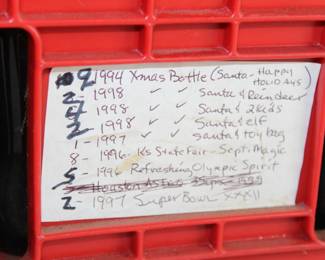 9 1994 Xmas Bottle (Santa - Happy Holidays
2 - 1998 ✓ ✓ Santa & Reindeer
4 - 1998 ✓ ✓ Santa & 2 kids
2 - 1998 ✓ ✓ Santa & elf
1 - 1997 ✓ ✓ Santa & toy bag
8 - 1996 - Ks State Fair - Sept. Magic
5 - 1996 Refreshing Olympic Spirit
Houston Astros
2 - 1997 Super Bowl XXXII